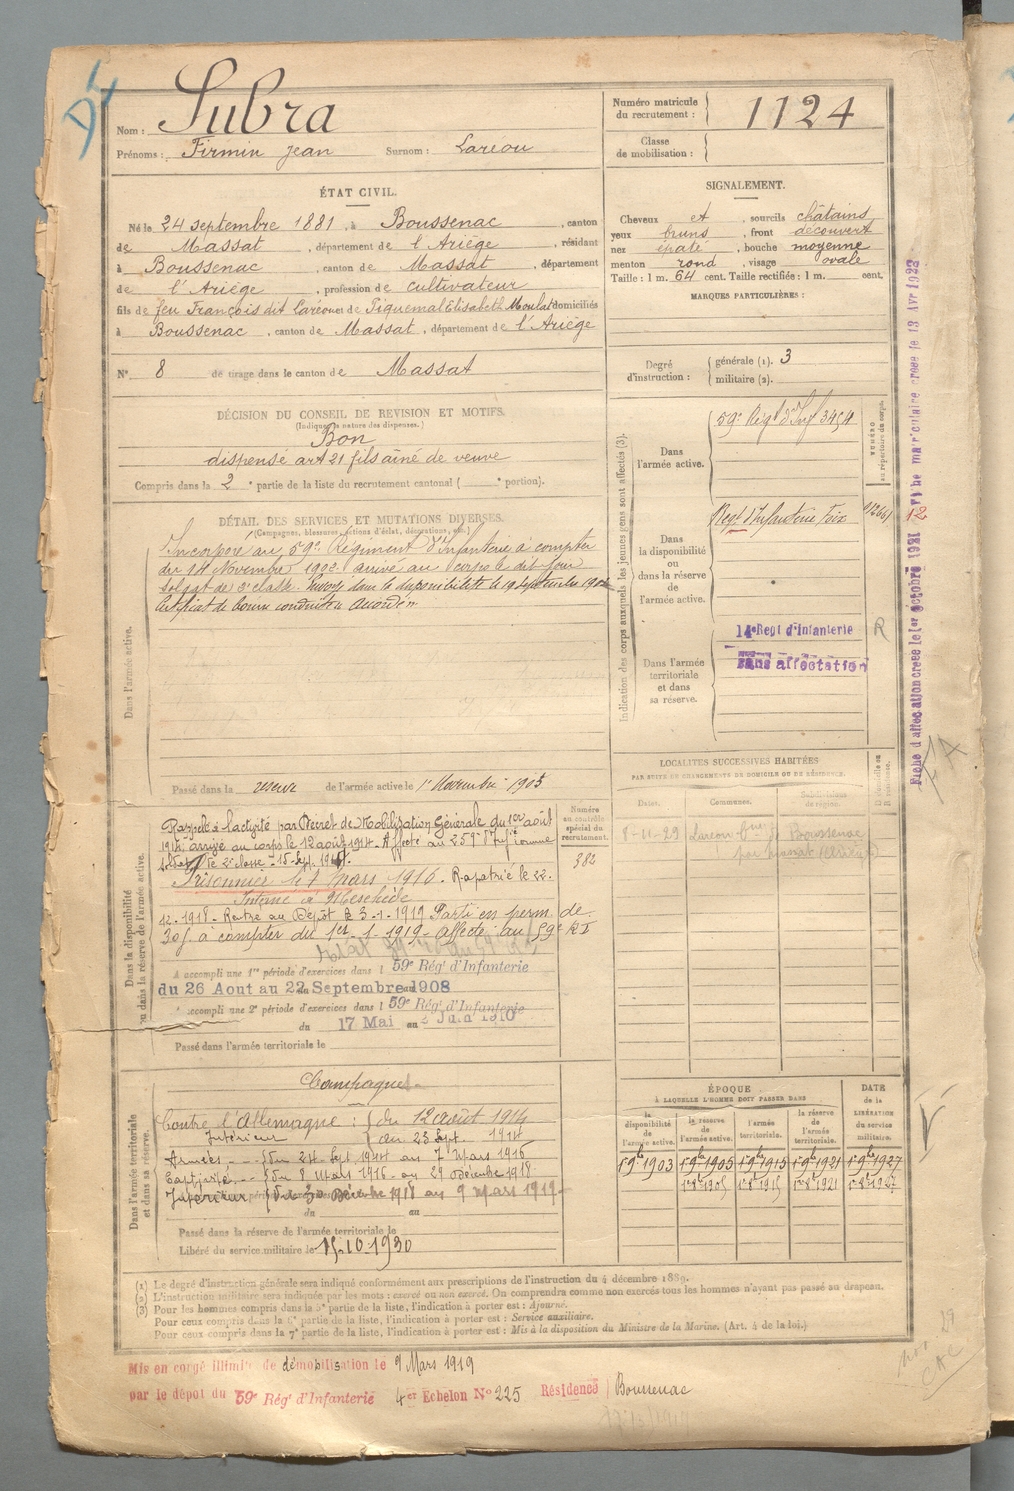 Nom : Subra
Prénoms : Firmin Jean Surnom : Laréou
Numéro matricule du recrutement : 1124
Classe de mobilisation :
ÉTAT CIVIL.
Né le 24 septembre 1881, à Boussenac, canton
de Massat, département de l'Ariège, résidant
à Boussenac, canton de Massat, département
de l'Ariège, profession de cultivateur
fils de feu François dit Laréou et de Piquemal Elisabeth Moulat domiciliés
à Boussenac, canton de Massat, département de l'Ariège
N° 8 de tirage dans le canton de Massat
SIGNALEMENT.
Cheveux et, sourcils châtains
yeux bruns, front découvert
nez épaté, bouche moyenne
menton rond, visage ovale
Taille : 1 m. 64 cent. Taille rectifiée : 1 m. cent.
MARQUES PARTICULIÈRES :
Degré d'instruction : générale (1). 3
militaire (2).
DÉCISION DU CONSEIL DE REVISION ET MOTIFS.
(Indiquer la nature des dispenses.)
Bon
dispensé art 21 fils aîné de veuve
Compris dans la 2e partie de la liste du recrutement cantonal ( e portion).
DÉTAIL DES SERVICES ET MUTATIONS DIVERSES.
(Campagnes, blessures, actions d'éclat, décorations, etc.)
Dans l'armée active.
Incorporé au 59e Régiment d'Infanterie à compter
du 14 Novembre 1902 arrivé au corps le dit jour
soldat de 2e classe. Envoyé dans la disponibilité le 19 Septembre 1903
Certificat de bonne conduite accordé
Passé dans la réserve de l'armée active le 1er Novembre 1905
Indication des corps auxquels les jeunes gens sont affectés (3).
NUMÉRO au répertoire du corps.
Dans l'armée active.
59e Régt d'Inf 3454
Dans la disponibilité ou dans la réserve de l'armée active.
Regt d'Infanterie Foix
Dans l'armée territoriale et dans sa réserve.
14e Regt d'Infanterie R
Sans affectation
LOCALITÉS SUCCESSIVES HABITÉES
PAR SUITE DE CHANGEMENTS DE DOMICILE OU DE RÉSIDENCE.
Dates. Communes. Subdivisions de région. D domicile ou R résidence.
8-11-29 Boussenac
par Massat
Dans la disponibilité ou dans la réserve de l'armée active.
Numéro au contrôle spécial du recrutement.
382
Rappelé à l'activité par Décret de Mobilisation Générale du 1er août
1914, arrivé au corps le 12 août 1914. Affecté au 259e d'Infie comme
soldat de 2e classe
Prisonnier le 7 mars 1916. Rapatrié le 22.
Interné à Meschede
12.1918. Rentré au Dépôt le 3-1-1919 Parti en perm. de
30 j. à compter du 1er-1-1919 affecté au 59e RI
A accompli une 1re période d'exercices dans l 59e Rég' d'Infanterie
du 26 Aout au 22 Septembre 1908
A accompli une 2e période d'exercices dans l 59e Rég' d'Infanterie
du 17 Mai au 2 Juin 1910
Passé dans l'armée territoriale le
Dans l'armée territoriale et dans sa réserve.
Campagnes
Contre l'Allemagne : du 12 août 1914
Intérieur au 23 Sept. 1914
Armées du 24 Sept 1914 au 7 Mars 1916
Captivité du 8 Mars 1916 au 29 Décembre 1918
Intérieur du 30 Décembre 1918 au 9 Mars 1919
du au
Passé dans la réserve de l'armée territoriale le
Libéré du service militaire le 15-10-1930
ÉPOQUE
À LAQUELLE L'HOMME DOIT PASSER DANS
DATE de la LIBÉRATION du service militaire.
la disponibilité de l'armée active. la réserve de l'armée active. l'armée territoriale. la réserve de l'armée territoriale.
1 9bre 1903 1 9bre 1905 1 9bre 1915 1 9bre 1921 1 9bre 1927
1er 8bre 1905 1er 8bre 1915 1er 8bre 1921 1er 8bre 1927
(1) Le degré d'instruction générale sera indiqué conformément aux prescriptions de l'instruction du 4 décembre 1889.
(2) L'instruction militaire sera indiquée par les mots : exercé ou non exercé. On comprendra comme non exercés tous les hommes n'ayant pas passé au drapeau.
(3) Pour les hommes compris dans la 5e partie de la liste, l'indication à porter est : Ajourné.
Pour ceux compris dans la 6e partie de la liste, l'indication à porter est : Service auxiliaire.
Pour ceux compris dans la 7e partie de la liste, l'indication à porter est : Mis à la disposition du Ministre de la Marine. (Art. 4 de la loi.)
Mis en congé illimité de démobilisation le 9 Mars 1919
par le dépot du 59e Rég' d'Infanterie 4er Echelon N° 225 Résidence Boussenac
Fiche d'affectation créée le 1er octobre 1921
Fiche matriculaire créée le 13 Avr 1923